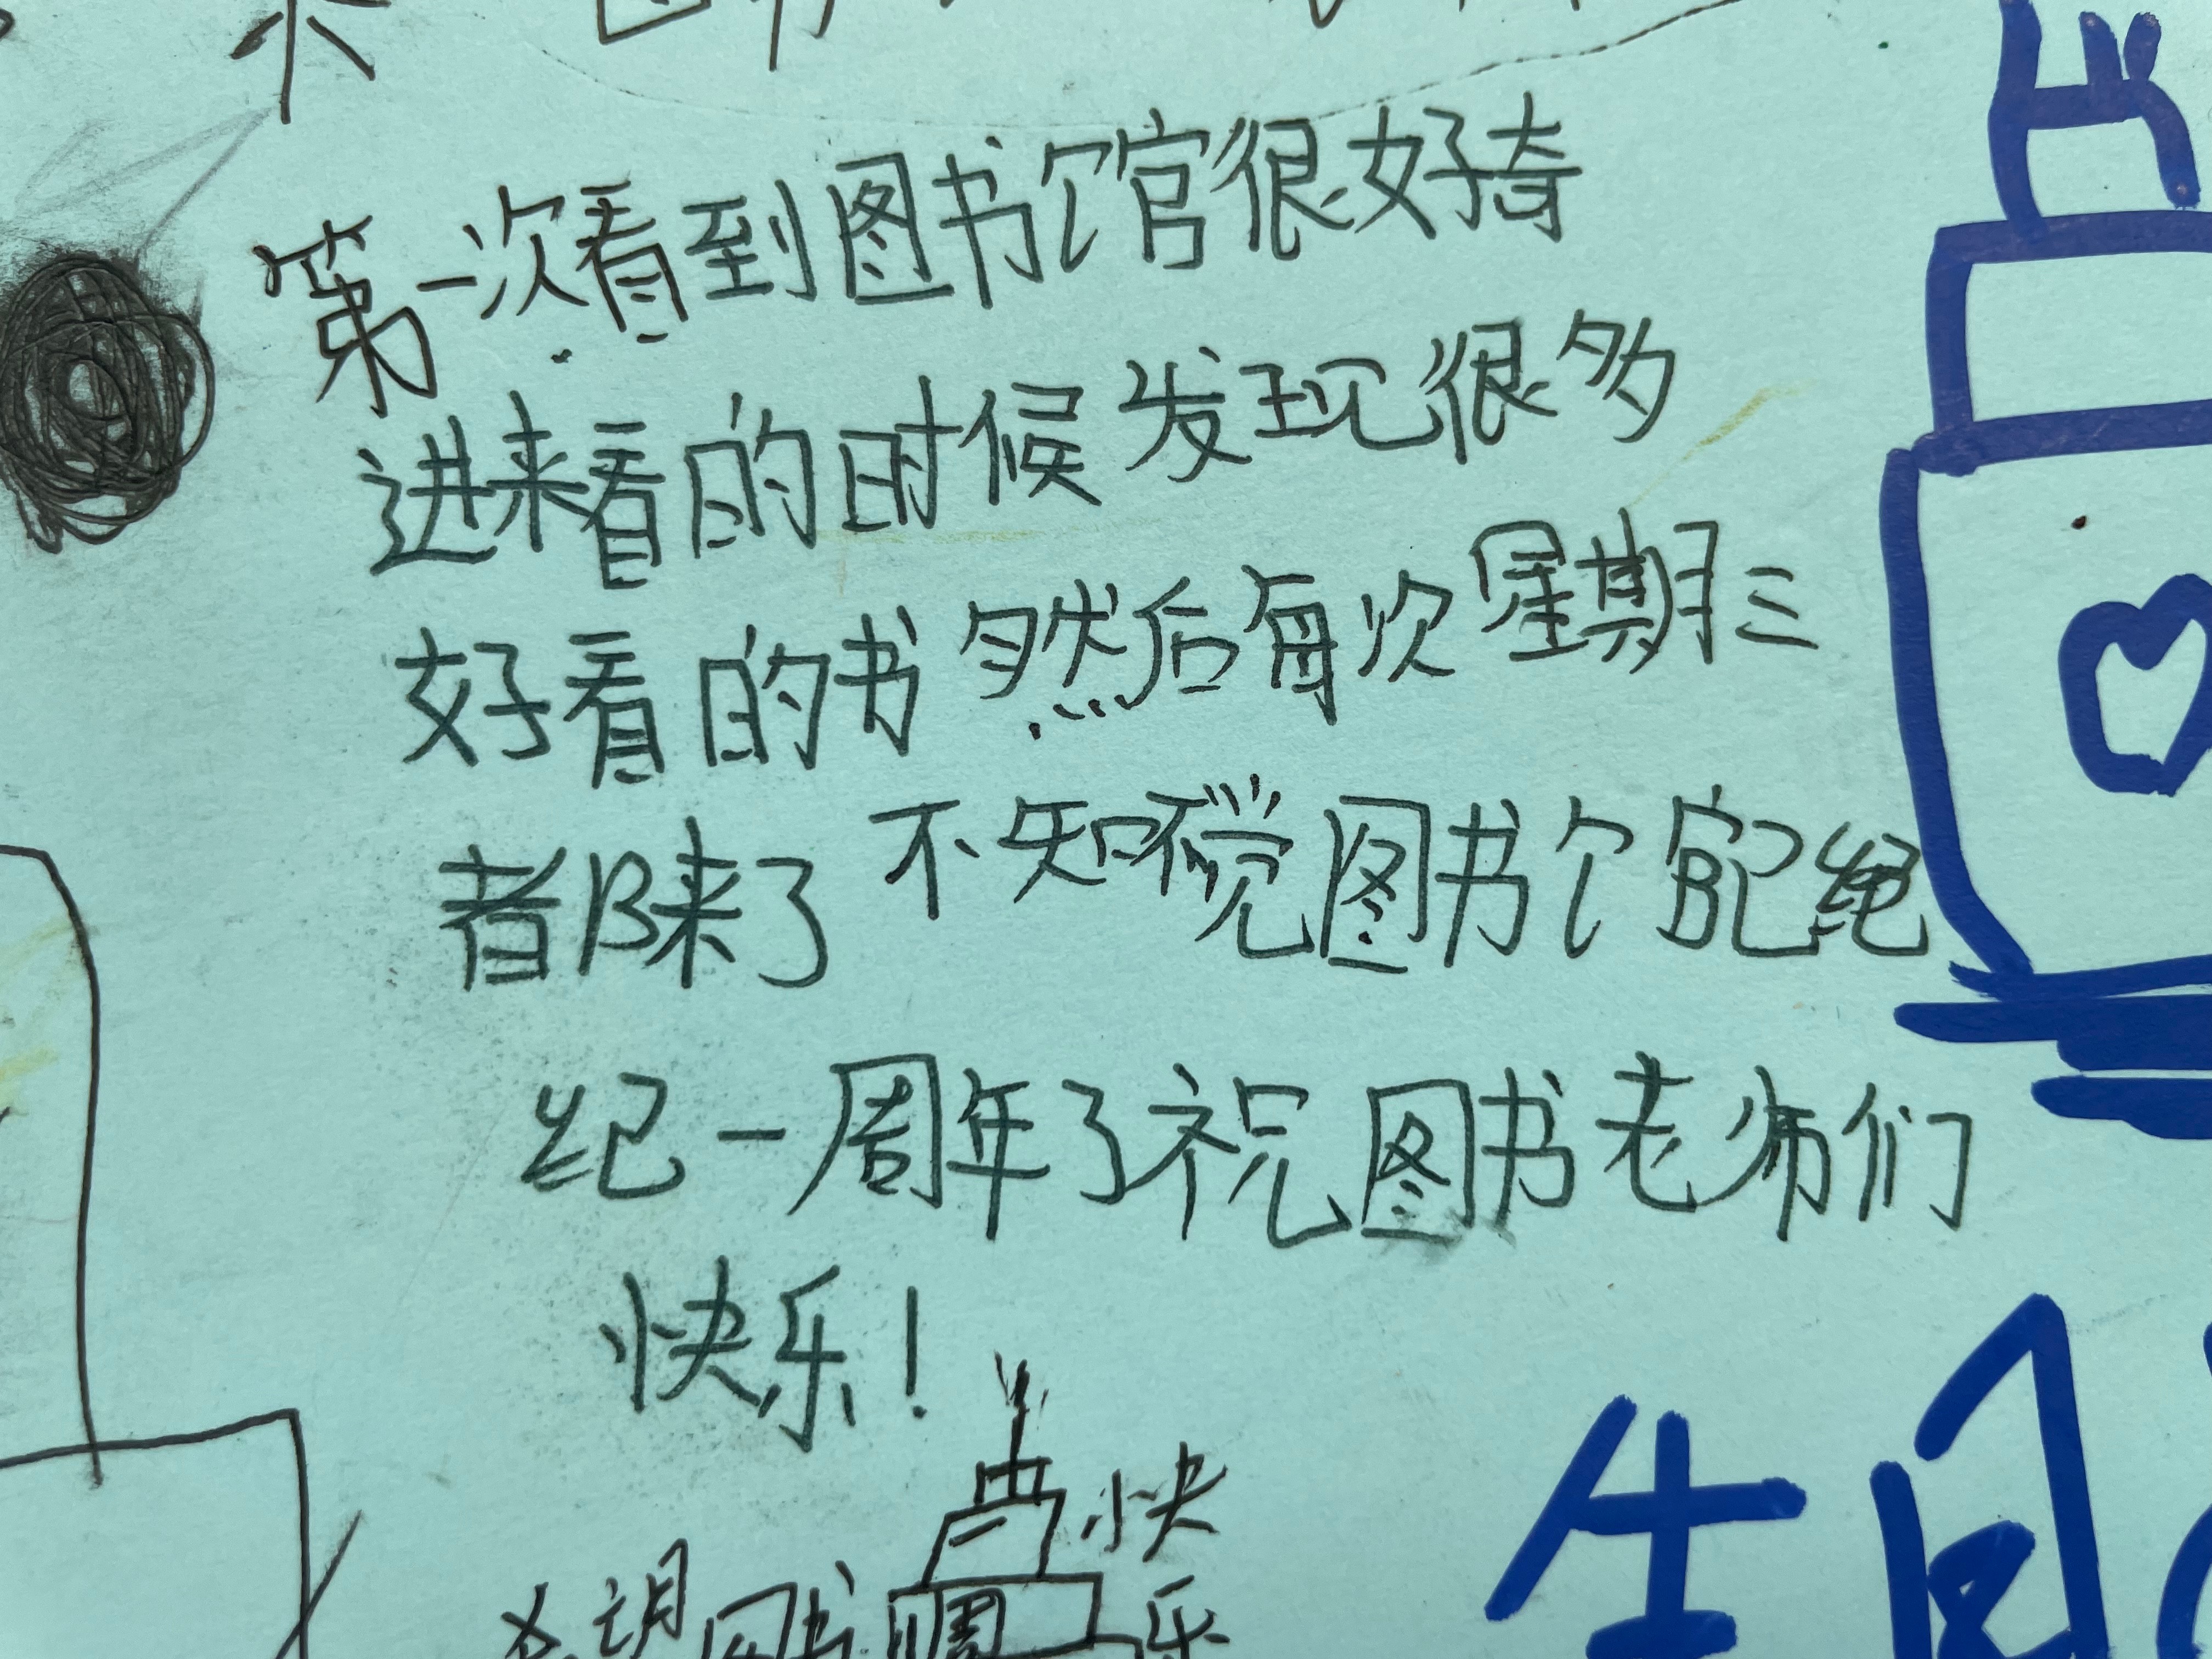 第一次看到图书馆很好奇
进来看的时候发现很多
好看的书然后每次星期三
都来了不知不觉图书馆已
纪一周年了祝图书老师们
快乐！
快
希望图书
周
乐
生日